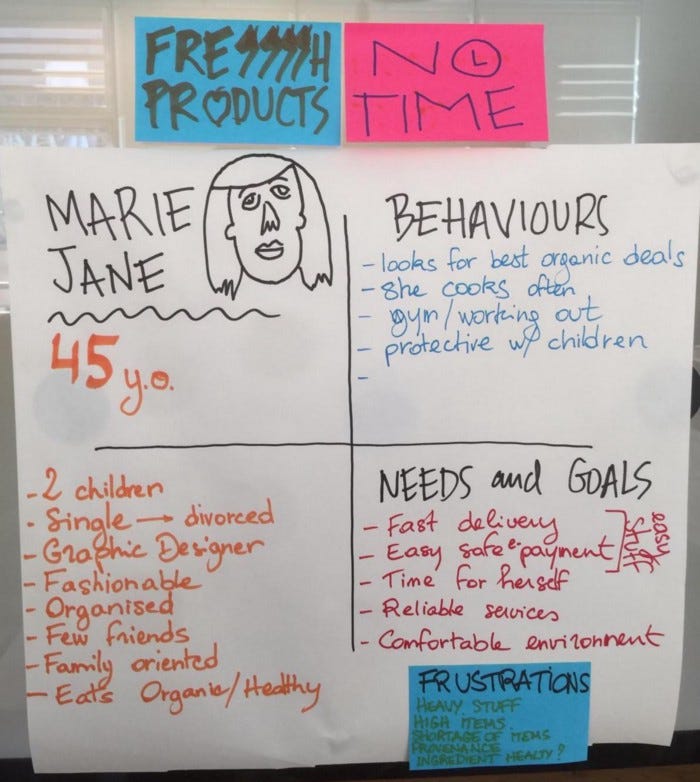 FRESSSSH
PRODUCTS
NO
TIME
MARIE
JANE
45 y.o.
BEHAVIOURS
- looks for best organic deals
- she cooks often
- gym/working out
- protective w/ children
-
- 2 children
- Single → divorced
- Graphic Designer
- Fashionable
- Organised
- Few friends
- Family oriented
- Eats Organic/Healthy
NEEDS and GOALS
- Fast delivery
- Easy safe payment
easy
stuff
- Time for herself
- Reliable services
- Comfortable environment
FRUSTRATIONS
HEAVY STUFF
HIGH ITEMS
SHORTAGE OF ITEMS
PROVENANCE
INGREDIENT HEALTY?